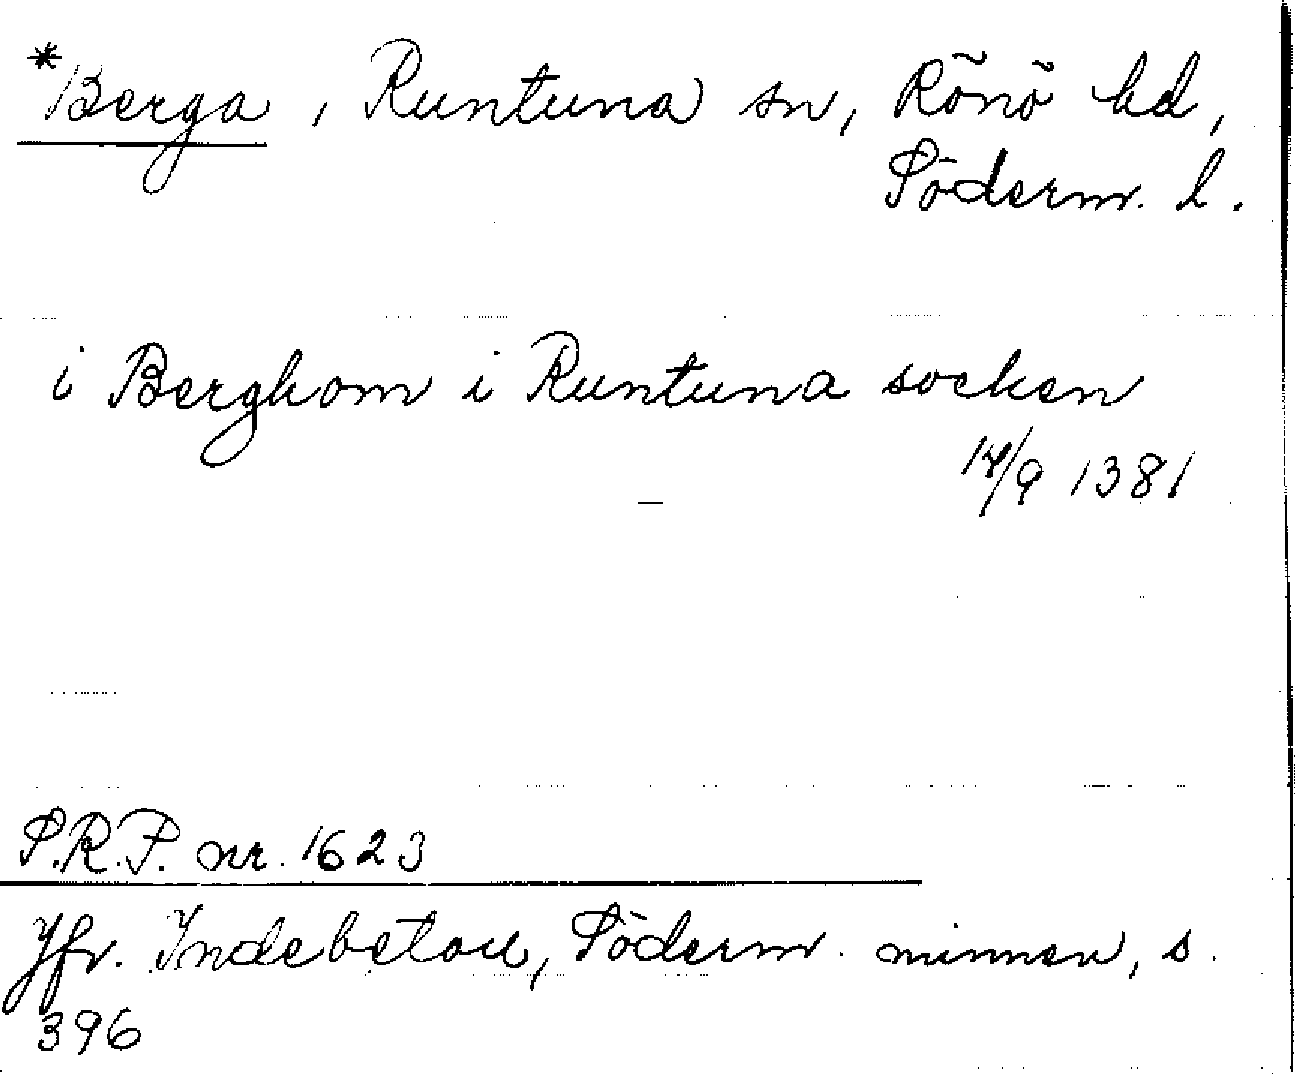 *Berga, Runtuna sn, Rönö hd,
Söderm. l.
i Berghom i Runtuna socken
14/9 1381
S.R.P. nr. 1623
Jfr. Indebetou, Söderm. minnen, s.
396